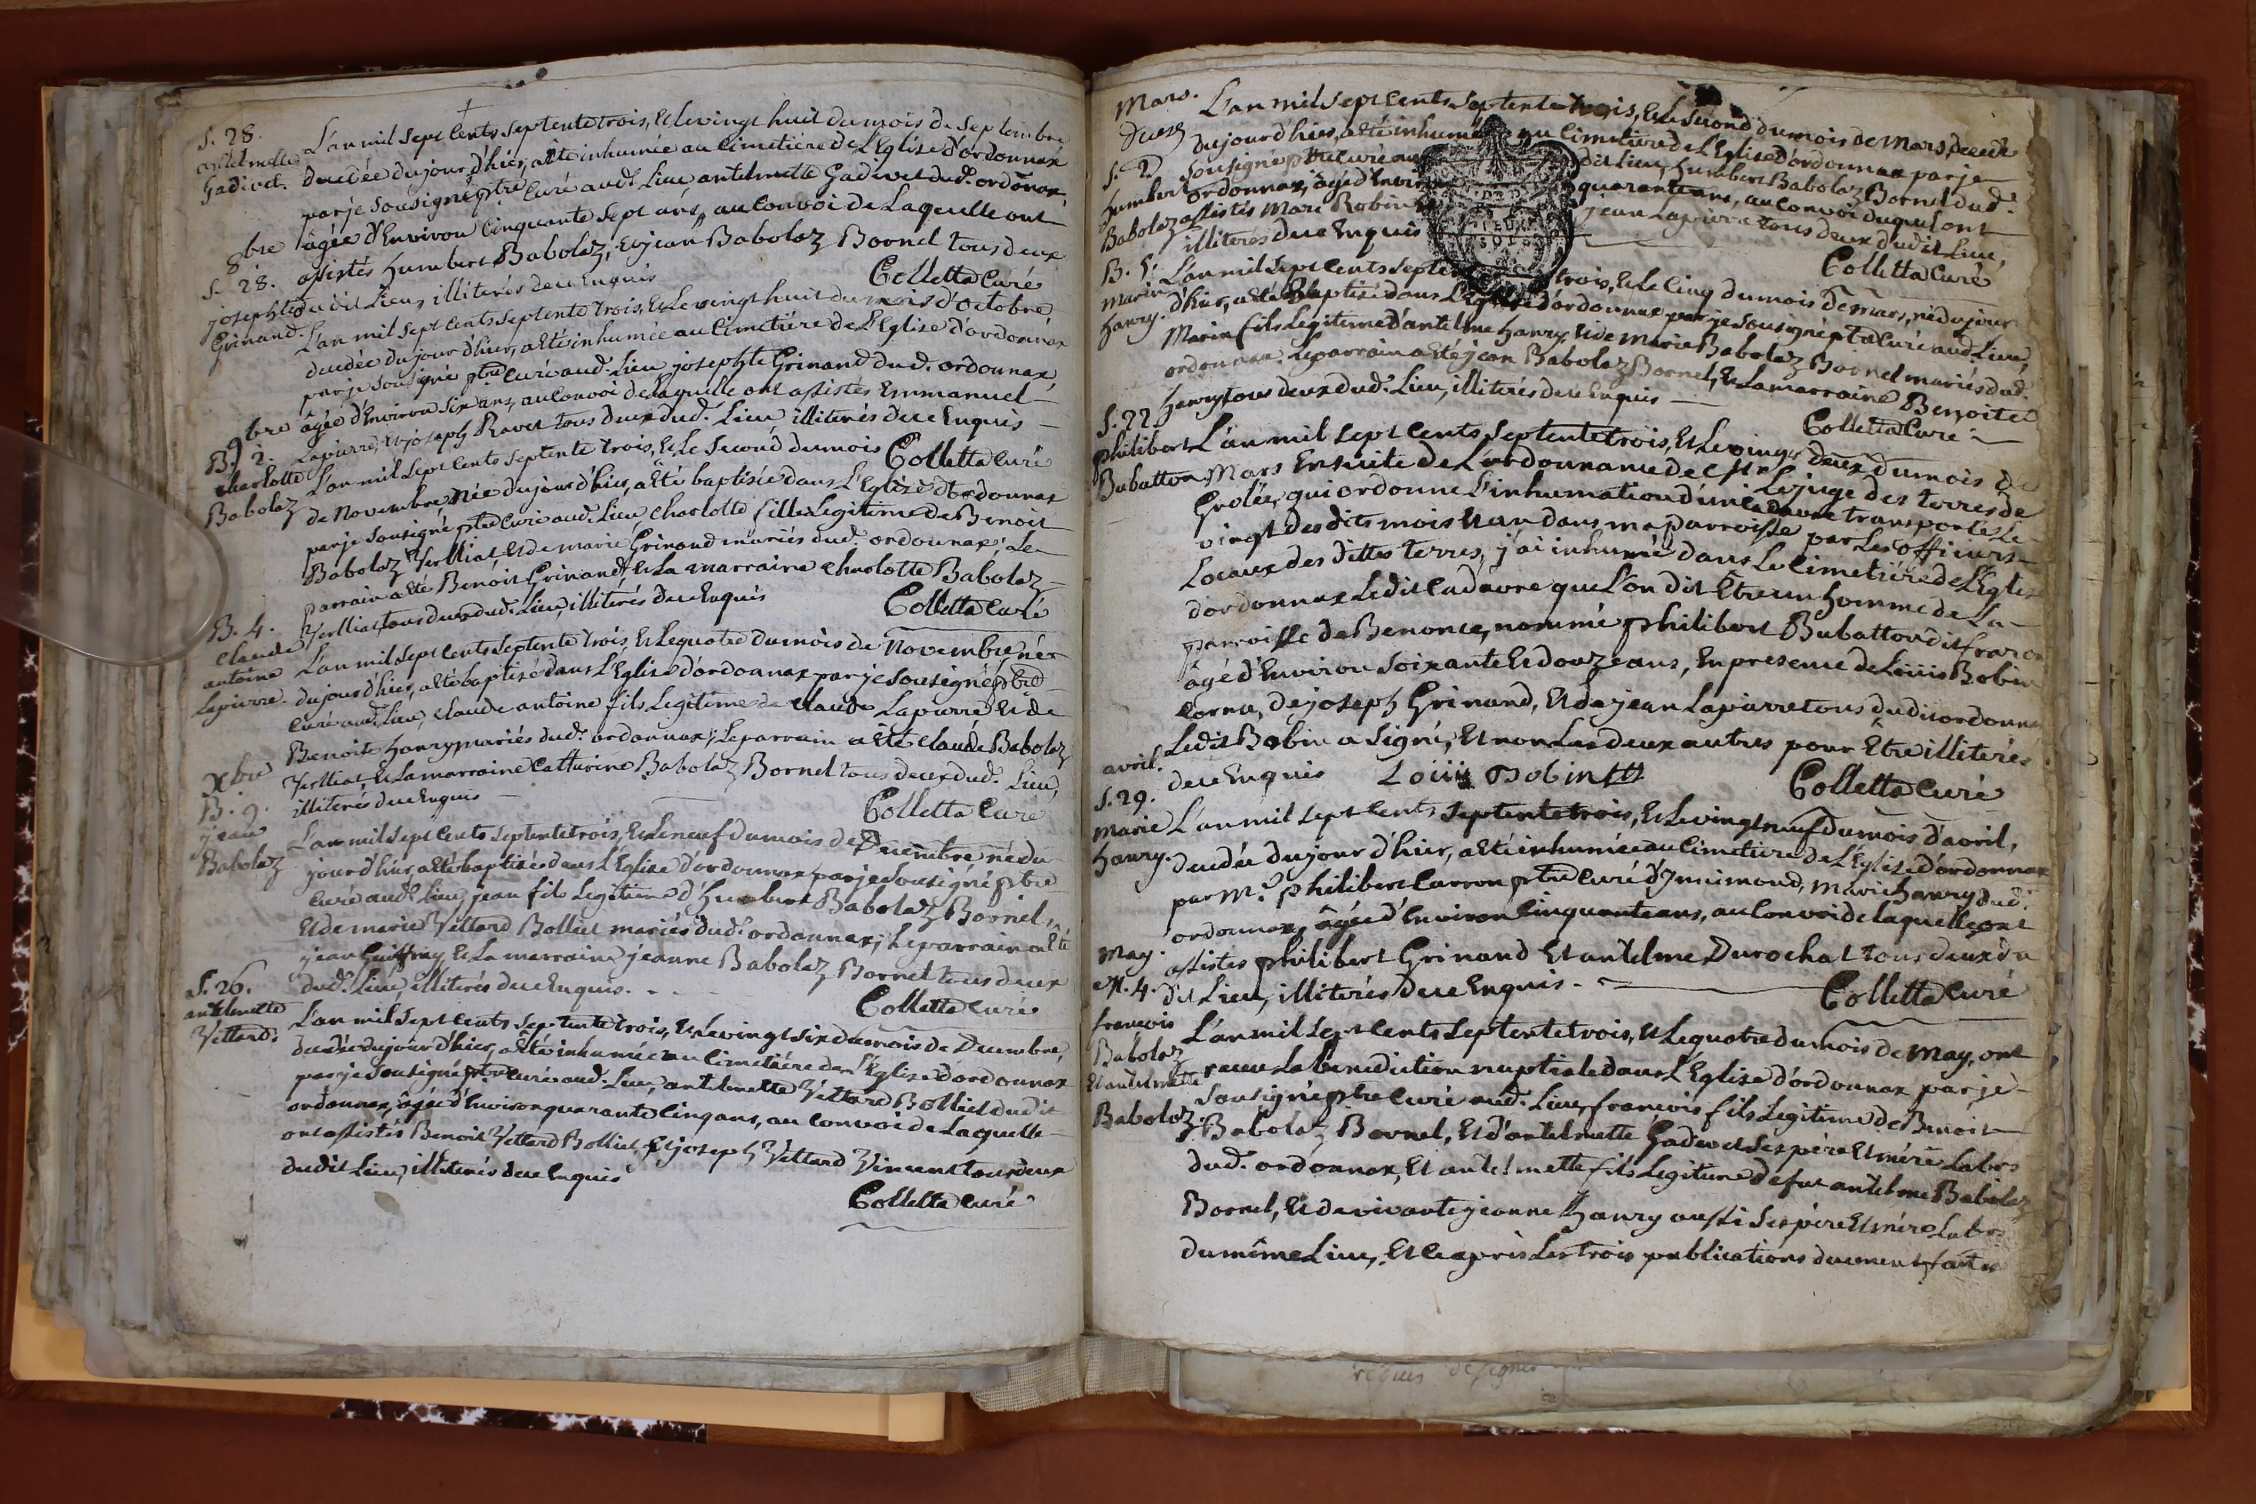 S. 28.
antelmette
Gadivet.
L'an mil sept cents septente trois, et le vingt huit du mois de septembre
decedée du jour d'hier, a été inhumée au cimetière de L'Eglise d'ordonnax
par je sousigné ptre curé aud. Lieu antelmette Gadivet dud. ordonnax,
âgée d'Environ Cinquante sept ans, au Convoi de Laquelle ont
assistés humbert Babolaz, et jean Babolaz Bornel tous deux
du dit Lieu, illiterés de ce Enquis
Colletta Curé
8bre
S. 28.
josephte
Grinand.
L'an mil sept cents septente trois, et Le vingt huit du mois d'octobre
decedée du jour d'hier, a été inhumée au Cimetière de L'Eglise d'ordonnax
par je sousigné ptre curé aud. Lieu josephte Grinand dud. ordonnax,
âgée d'Environ six ans, au Convoi de Laquelle ont assistés Emmanuel
Lapierre, et joseph Ravet tous deux dud. Lieu illiterés de ce Enquis
Colletta Curé
9bre
B. 2.
charlotte
Babolaz
L'an mil sept cents septente trois, et Le second du mois
de Novembre, née du jour d'hier, a été baptisée dans L'Eglise d'ordonnax
par je sousigné ptre curé aud. Lieu, charlotte fille Legitime de Benoit
Babolaz Verlliat, et de marie Grinand mariés dud. ordonnax; Le
parrain a été Benoit Grinand, et La marraine charlotte Babolaz
Verlliat tous deux dud. Lieu, illiterés de ce Enquis
Colletta Curé
B. 4.
claude
antoine
Lapierre.
L'an mil sept cents septente trois, et Le quatre du mois de Novembre, né
du jour d'hier, a été baptisé dans L'Eglise d'ordonnax par je sousigné ptre
curé aud. Lieu, claude antoine fils Legitime de claude Lapierre et de
Benoite hanry mariés dud. ordonnax; Le parrain a été claude Babolaz
Verlliat, et La marraine Catherine Babolaz Bornel tous deux dud. Lieu,
illiterés de ce Enquis
Colletta Curé
Xbre
B. 9.
jean
Babolaz
L'an mil sept cents septente trois, et Le neuf du mois de Decembre, né du
jour d'hier, a été baptisé dans L'Eglise d'ordonnax par je sousigné ptre
curé aud. Lieu, jean fils Legitime d'humbert Babolaz Bornel,
et de marie Vettard Bolliet mariés dud. ordonnax; Le parrain a été
jean Guiffray, et La marraine jeanne Babolaz Bornel tous deux
dud. Lieu, illiterés de ce Enquis.
Colletta Curé
S. 26.
antelmette
Vettard.
L'an mil sept cents septente trois, et Le vingt six du mois de Decembre,
decedée du jour d'hier, a été inhumée au cimetière de L'Eglise d'ordonnax
par je sousigné ptre curé aud. Lieu, antelmette Vettard Bolliet du dit
ordonnax, âgée d'Environ quarante Cinq ans, au Convoi de Laquelle
ont assistés Benoit Vettard Bolliet, Et joseph Vettard Vincent tous deux
du dit Lieu, illiterés de ce Enquis
Colletta Curé
Mars.
Deces
S. 2.
humbert
Babolaz
L'an mil sept cents septente trois, et Le second du mois de Mars, decedé
du jour d'hier, a été inhumé au Cimetière de L'Eglise d'ordonnax par je
sousigné ptre curé au dit Lieu, humbert Babolaz Bornel dud.
ordonnax, âgé d'Environ quarante ans, au Convoi duquel ont
assistés Marc Robin jean Lapierre tous deux dudit Lieu,
illiterés de ce Enquis
Colletta Curé
B. 5.
Marin
hanry.
L'an mil sept cents septente trois, et Le cinq du mois de mars, né du jour
d'hier, a été Baptisé dans L'Eglise d'ordonnax par je sousigné ptre curé aud. Lieu,
Marin fils Legitime d'antelme hanry, et de marie Babolaz Bornel mariés dud.
ordonnax. Le parrain a été jean Babolaz Bornel, et La marraine Benoite
hanry tous deux dud. Lieu, illiterés de ce Enquis
Colletta Curé
S. 22.
philibert
Bubatton
L'an mil sept cents septente trois, et Le vingt deux du mois de
Mars Ensuite de L'ordonnance de Mr Le juge des terres de
Grolée, qui ordonne L'inhumation d'un cadavre transporté Le
vingt des dits mois et an dans ma parroisse par Les officiers
Locaux des dittes terres, j'ai inhumé dans Le Cimetière de L'Eglise
d'ordonnax Le dit cadavre que L'on dit Etre un homme de La
parroisse de Benonce, nommé philibert Bubatton dit
âgé d'Environ soixante et douze ans, En presence de Loüis Bobin
Cornu, de joseph Grinand, et de jean Lapierre tous du dit ordonnax
Le dit Bobin a signé, et non Les deux autres pour Etre illiterés
de ce Enquis Loüis Bobin
Colletta Curé
avril.
S. 29.
Marie
hanry.
L'an mil sept cents septente trois, et Le vingt neuf du mois d'avril,
decedée du jour d'hier, a été inhumée au Cimetière de L'Eglise d'ordonnax
par Mr. philibert Carron ptre curé d'Innimond, Marie hanry dud.
ordonnax, âgée d'Environ Cinquante ans, au Convoi de laquelle ont
assistés philibert Grinand et antelme Durochat tous deux du
dit Lieu, illiterés de ce Enquis.
Colletta Curé
May.
M. 4.
françois
Babolaz
Et antelmette
Babolaz.
L'an mil sept cents septente trois, et Le quatre du mois de May, ont
reçeu La benediction nuptiale dans L'Eglise d'ordonnax par je
sousigné ptre curé aud. Lieu, françois fils Legitime de Benoit
Babolaz Bornel, et d'antelmette Gadivet ses père et mère Labrs
dud. ordonnax, et antelmette fils Legitime de fut antelme Babolaz
Bornel, et de vivante jeanne hanry aussi ses père et mère Labrs
du même Lieu, Et ce après Les trois publications duement faites